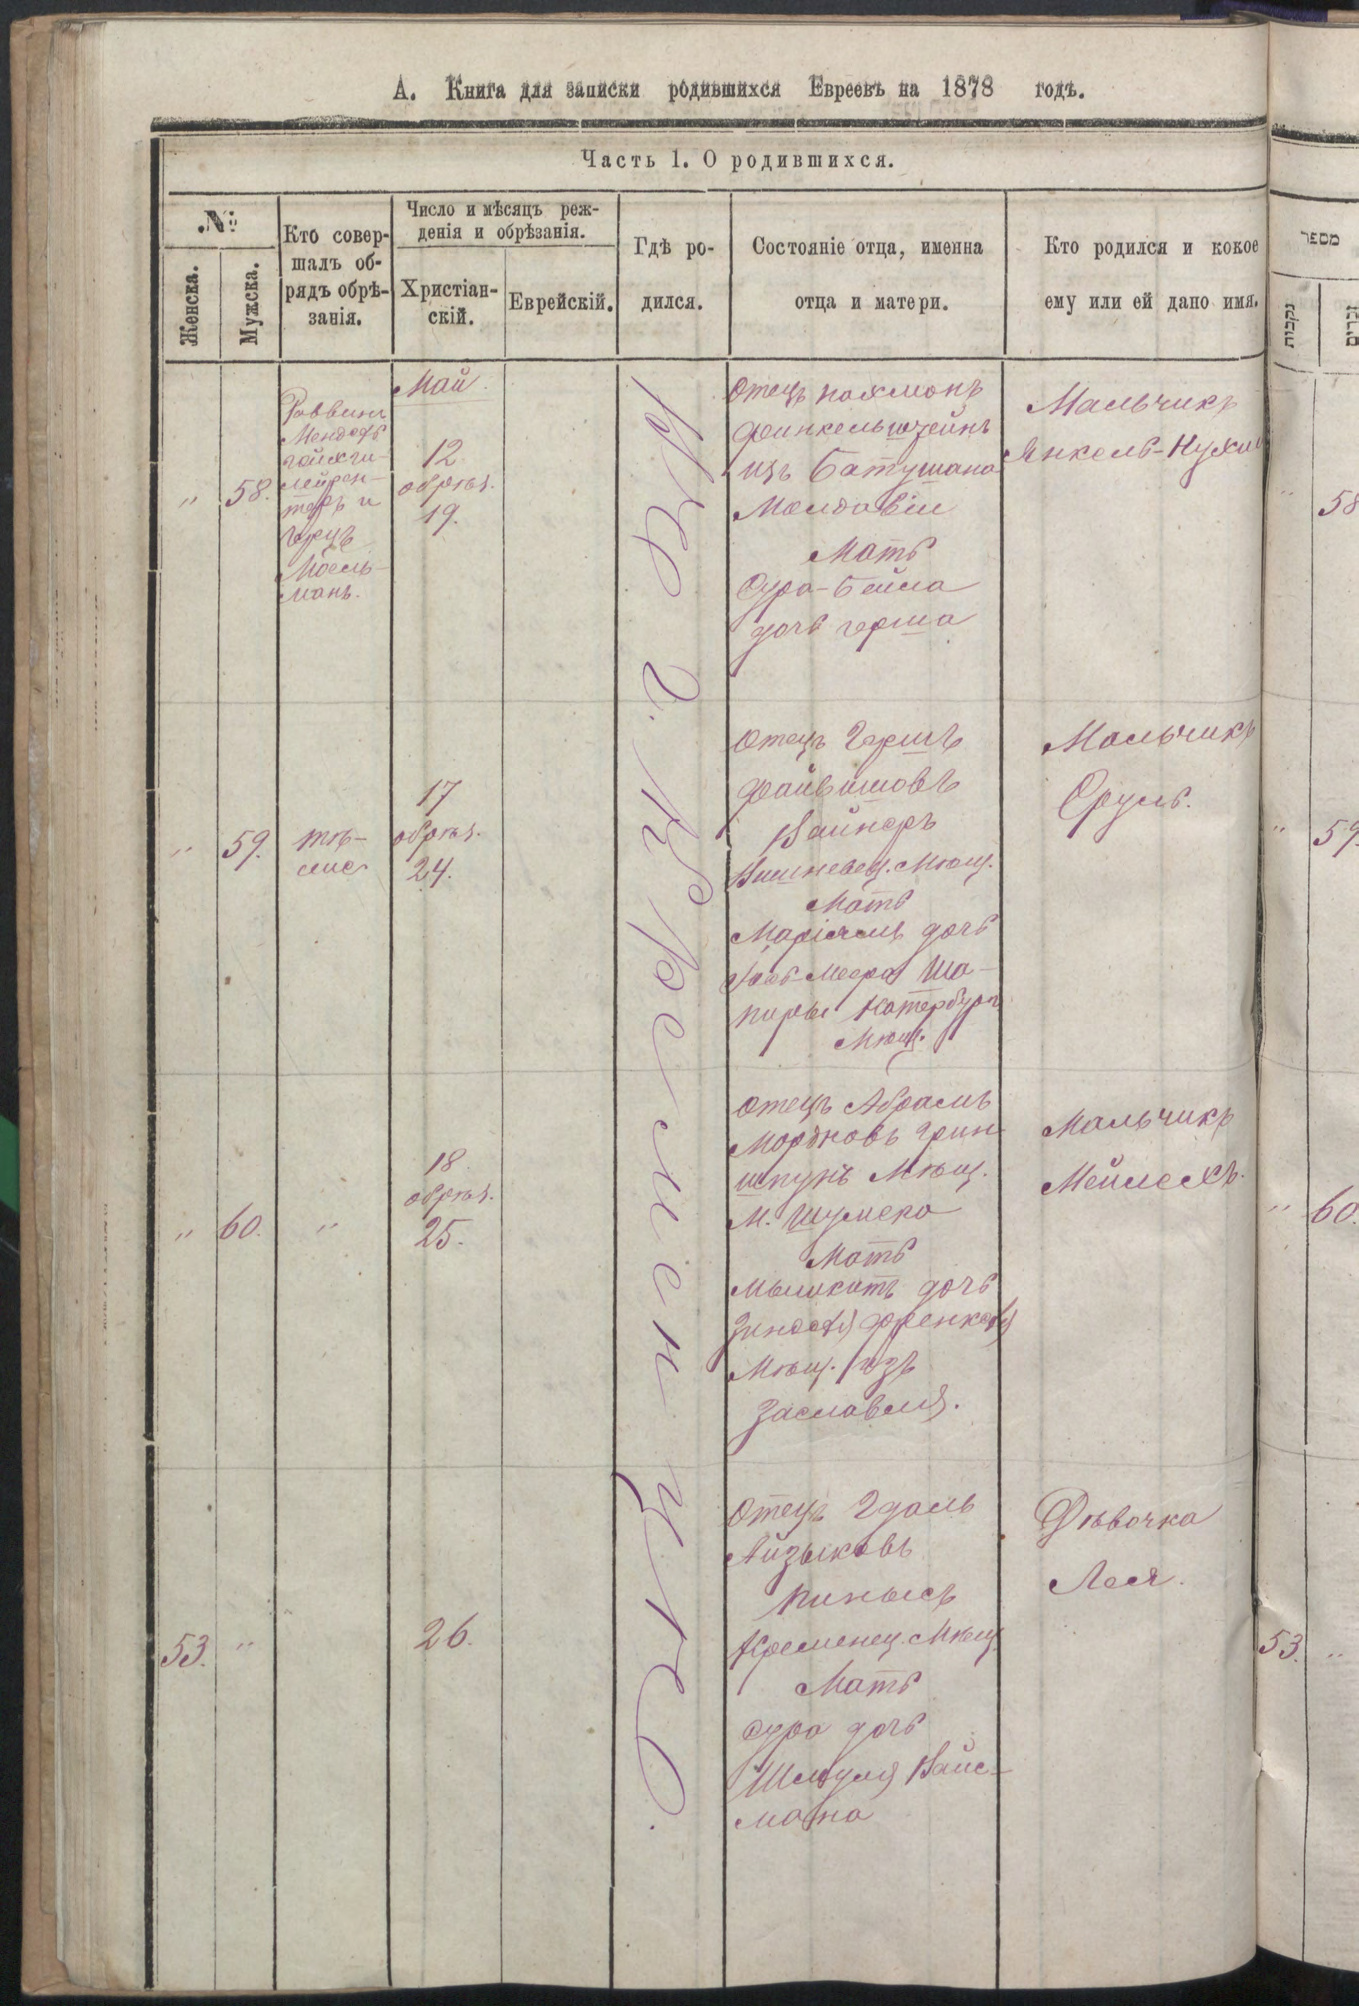 А. Книга для записки родившихся Евреевъ на 1878 годъ.
Часть 1. О родившихся.
№
Женска.
Мужска.
Кто совер-
шалъ об-
рядъ обрѣ-
занія.
Число и мѣсяцъ реж-
денія и обрѣзанія.
Христіан-
скій.
Еврейскій.
Гдѣ ро-
дился.
Состояніе отца, именна
отца и матери.
Кто родился и кокое
ему или ей дано имя.
מספר
נקבות
זכרים
Май
"
58.
Раввинъ
и
Герцъ
Моель-
манъ.
12
обрѣз.
19.
Въ г. Кременцѣ.
Отецъ Нахманъ
Финкельштейнъ
изъ Батушана
Молдавіи
Мать
Сура-Бейла
дочь Герша
Мальчикъ
Янкель-Нухим
"
58
"
59.
тѣ-
же
17
обрѣз.
24.
Отецъ Гершъ
Файвишовъ
Вайнеръ
Вишневец. Мѣщ.
Мать
Маріамъ дочь
Меера Ша-
пиры Катербург
Мѣщ.
Мальчикъ
Сруль.
"
59
"
60.
"
18
обрѣз.
25.
Отецъ Абрамъ
Мордковъ Грин-
шпунъ Мѣщ.
М. Шумска
Мать
дочь
Френкеля
Мѣщ. изъ
Заславля.
Мальчикъ
Мейлехъ.
"
60.
53.
"
26.
Отецъ Гдаль
Айзыковъ
Кременец. Мѣщ.
Мать
Сура дочь
Шмуля Вайс-
мана
Дѣвочка
Лея.
53.
"